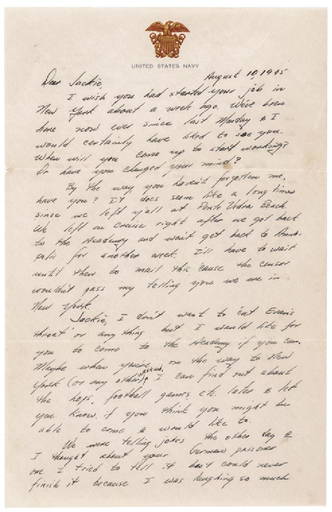 UNITED STATES NAVY
August 10, 1945
Dear Jackie,
I wish you had started your job in
New York about a week ago. We've been
here now ever since last Monday & I
would certainly have liked to see you.
When will you come up to start working?
Or have you changed your mind?
By the way you haven't forgotten me,
have you? It does seem like a long time
since we left y'all at Ponte Vedra Beach
We left on cruise right after we got back
to the Academy and won't get back to
for another week. I'll have to wait
until then to mail this 'cause the censor
wouldn't pass my telling you we are in
New York.
Jackie, I don't want to 'cut
throat' or any thing but I would like for
you to come to the Academy if you can.
Maybe when you're on the way to New
York (or any other I can find out about
the hops, football games etc. later & let
you know if you think you might be
able to come & would like to
We were telling jokes the other day &
I thought about your German prisoner
one I tried to tell it but could never
finish it because I was laughing so much